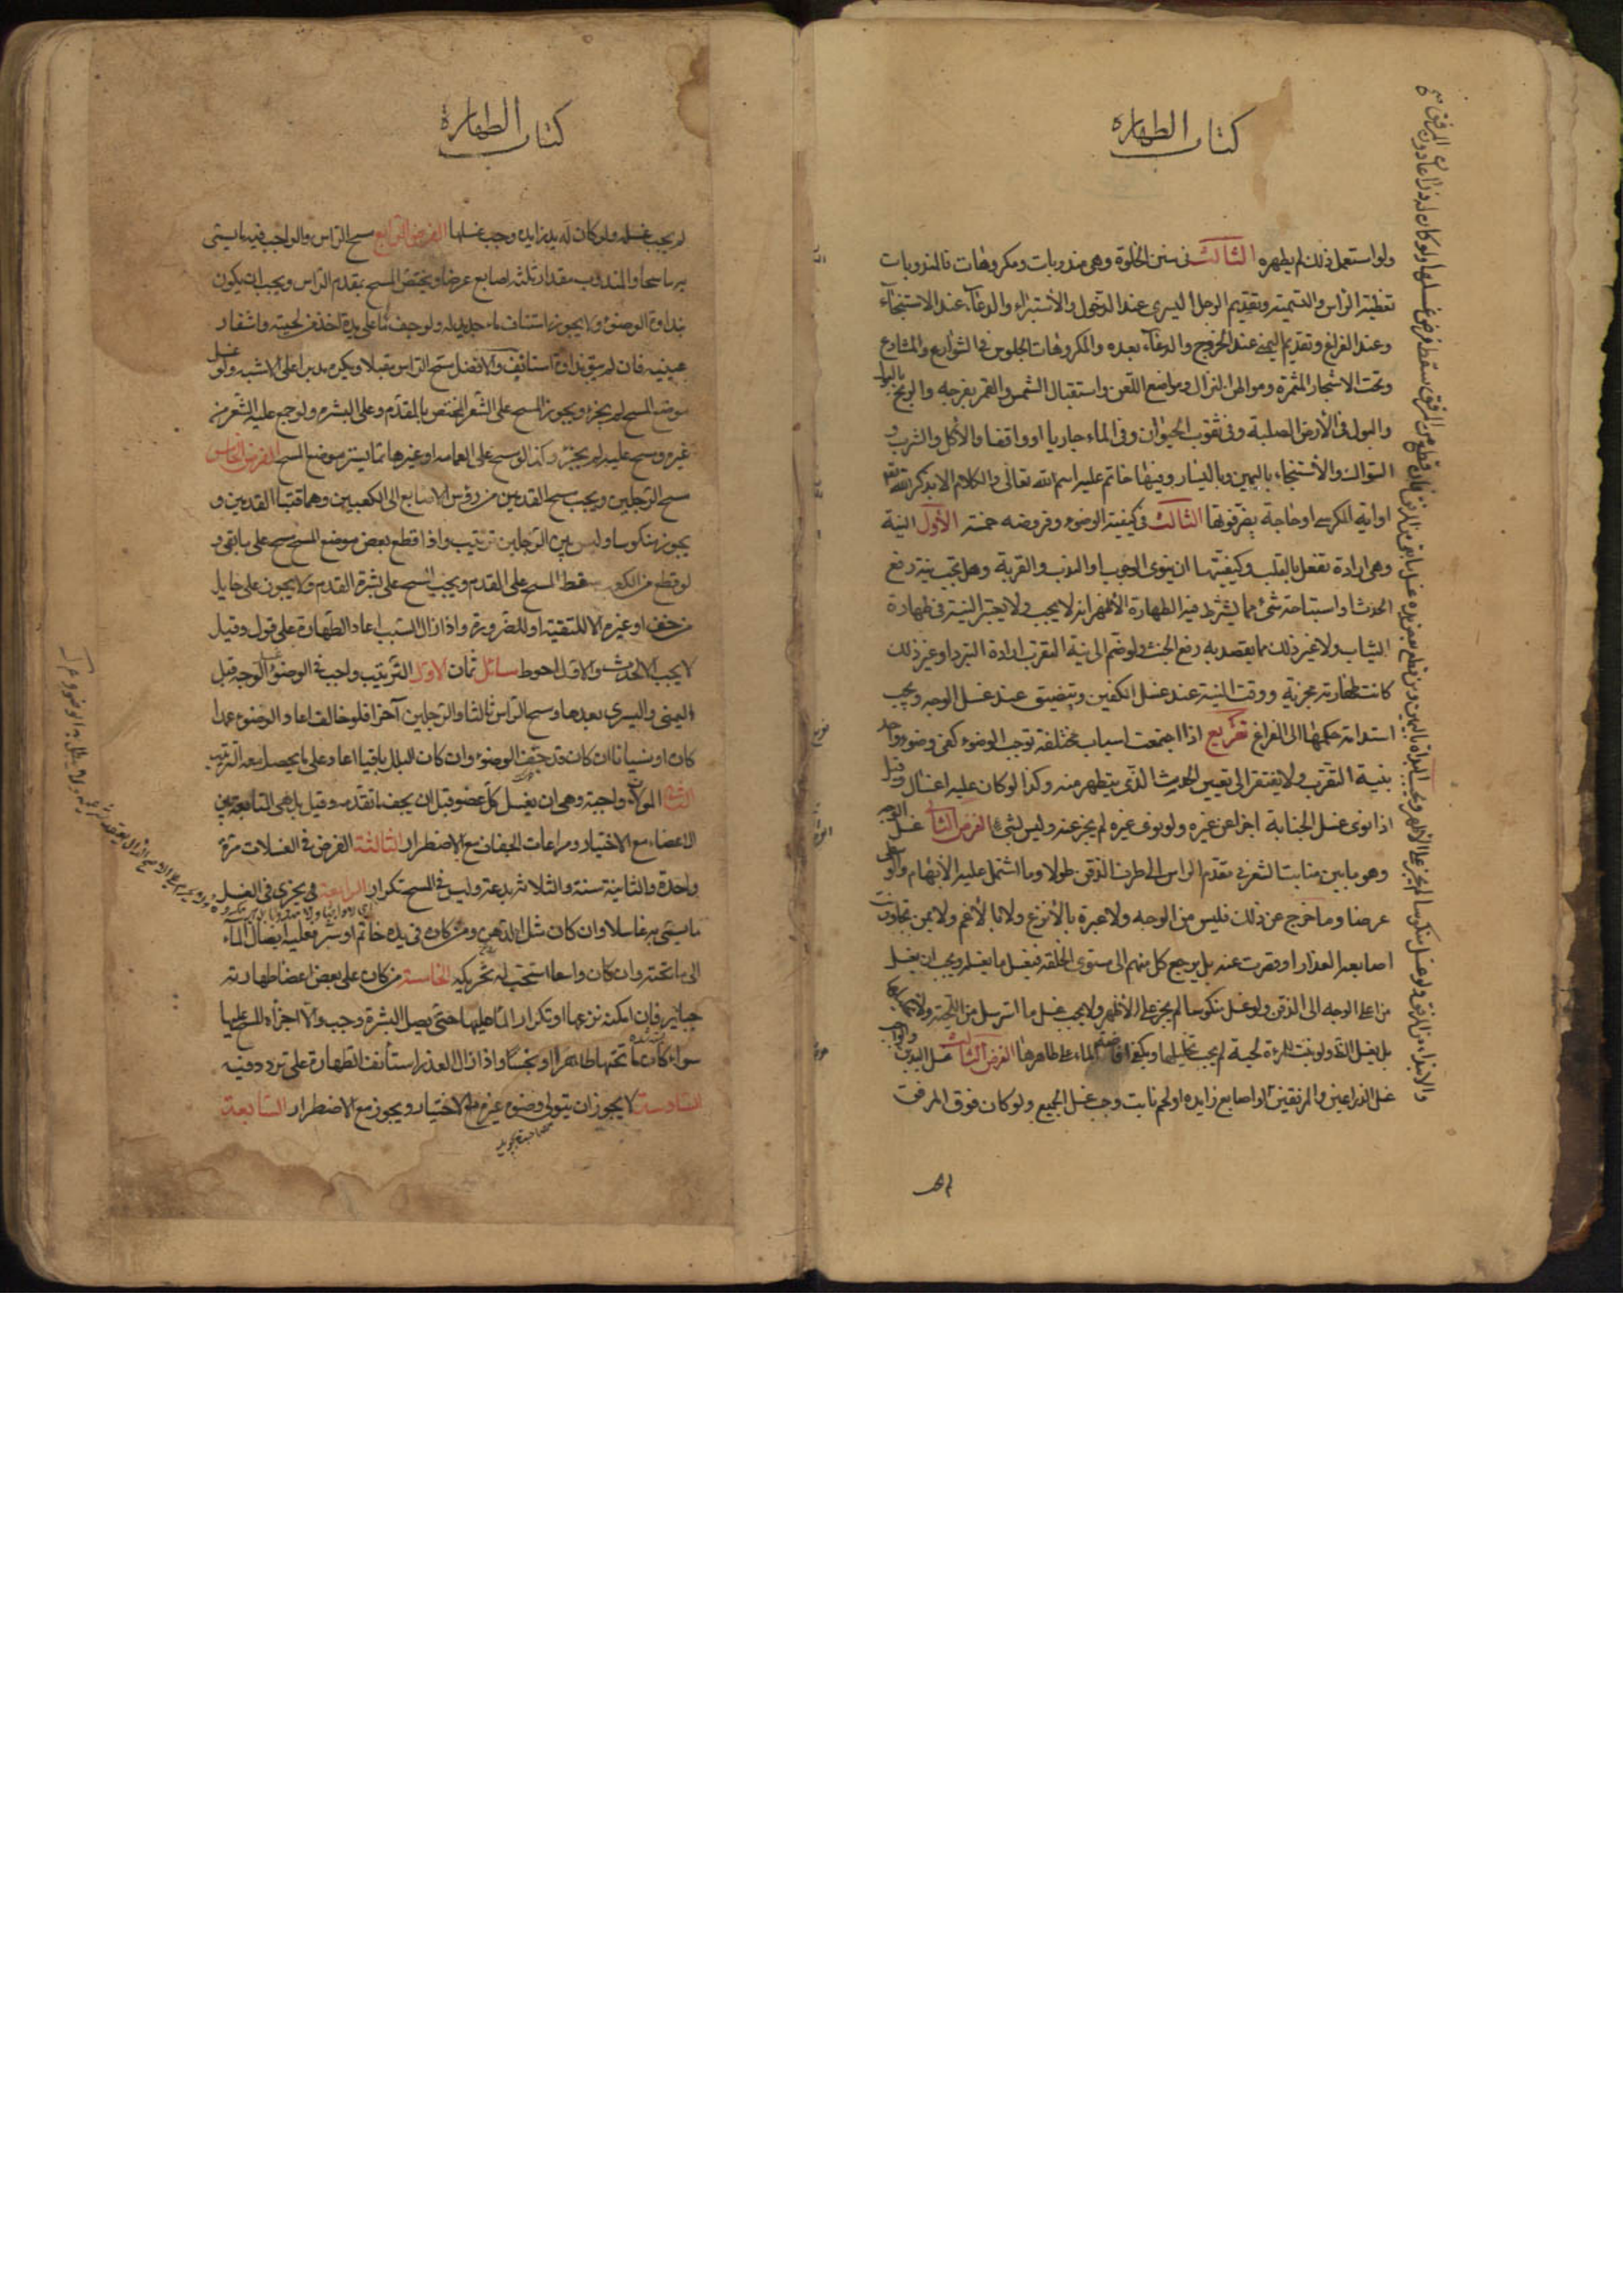 كتاب الطهارة
ولو استعمل ذلك لم يطهره الثالث في سنن الخلوة وهي مندوبات ومكروهات فالمندوبات
تغطية الراس والتسمية وتقديم الرجل اليسرى عند الدخول والاستبراء والدعاء عند الاستنجاء
وعند الفراغ وتقديم اليمنى عند الخروج والدعاء بعده والمكروهات الجلوس في الشوارع والمشارع
وتحت الاشجار المثمرة ومواطن النزال ومواضع اللعن واستقبال الشمس والقمر بفرجه والريح بالبول
والبول في الأرض الصلبة وفي ثقوب الحيوان وفي الماء جاريا او واقفا والأكل والشرب و
السواك والأستنجاء باليمين وباليسار وفيها خاتم عليه اسم الله تعالى والكلام الا بذكر الله تعالى
او اية الكرسي او حاجة يضر فوتها الثالث في كيفية الوضوء وفروضه خمسة الأول النية
وهي ارادة تفعل بالقلب وكيفيتها ان ينوى الوجوب او الندب والقربة وهل تجب نية رفع
الحدث او استباحة شئ مما يشترط فيه الطهارة الأظهر انه لا يجب ولا يعتبر النية في طهارة
الثياب ولا غير ذلك مما يقصد به رفع الخبث ولو ضم الى نية التقرب ارادة التبرد او غير ذلك
كانت طهارته مجزية ووقت النية عند غسل الكفين ويتضيق عند غسل الوجه ويجب
استدامة حكمها الى الفراغ تفريع اذا اجتمعت اسباب مختلفة توجب الوضوء كفى وضوء واحد
بنية التقرب ولا يفتقر الى تعيين الحدث الذى يتطهر منه وكذا لو كان عليه اغسال وقيل
اذا نوى غسل الجنابة اجزا عن غيره ولو نوى غيره لم يجز عنه وليس بشئ الفرض الثاني غسل الوجه
وهو ما بين منابت الشعر في مقدم الراس الى طرف الذقن طولا وما اشتمل عليه الأبهام والوسطى
عرضا وما خرج عن ذلك فليس من الوجه ولا عبرة بالأنزع ولا بالأغم ولا بمن تجاوزت
اصابعه العذار او قصرت عنه بل يرجع كل منهم الى مستوى الخلقة فيغسل ما يغسله ويجب ان يغسل
من اعلى الوجه الى الذقن ولو غسل منكوسا لم يجز على الأظهر ولا يجب غسل ما استرسل من اللحية ولا تخليلها
بل يغسل الظاهر ولو نبت للمرءة لحية لم يجب تخليلها ويكفى افاضة الماء على ظاهرها الفرض الثالث غسل اليدين والواجب
غسل الذراعين والمرفقين او اصابع زايده او لحم نابت وجب غسل الجميع ولو كان فوق المرفق
والابتداء من المرفق ولو غسل منكوسا لم يجز على الأظهر ويجب البداة باليمين ومن قطع بعض يده غسل ما بقى من المرفق فان قطع من المرفق سقط فرض غسلها ولو كان له ذراعان دون المرفق
كتاب الطهارة
لم يجب غسله ولو كان له يد زايده وجب غسلها الفرض الرابع مسح الراس والواجب فيه ما يسمى
به ماسحا والمندوب مقدار ثلثه اصابع عرضا ويختص المسح بمقدم الراس ويجب ان يكون
بنداوة الوضوء ولا يجوز استئناف ماء جديد له ولو جف ما على يده اخذ من لحيته واشفار
عينيه فان لم يبق نداوة استانف والافضل مسح الراس مقبلا ويكره مدبرا على الاشبه ولو غسل
موضع المسح لم يجزء ويجوز المسح على الشعر المختص بالمقدم وعلى البشره ولو جمع عليه الشعر من
غيره ومسح عليه لم يجزء وكذا لو مسح على العمامه او غيرها مما يستر موضع المسح الفرض الخامس
مسح الرجلين ويجب مسح القدمين من رؤس الاصابع الى الكعبين وهما قبتا القدمين و
يجوز منكوسا وليس بين الرجلين ترتيب واذا قطع بعض موضع المسح مسح على ما بقى و
لو قطع من الكعب سقط المسح على القدم ويجب المسح على بشرة القدم ولا يجوز على حايل
من خف او غيره الا للتقية او للضرورة واذا زال السبب اعاد الطهارة على قول وقيل
لا يجب الا لحدث والاول احوط مسائل ثمان الاولى الترتيب واجب في الوضوء غسل الوجه قبل
اليمنى واليسرى بعدها ومسح الراس ثالثا والرجلين آخرا فلو خالف اعاد الوضوء عمدا
كان او نسيانا ان كان قد جف الوضوء وان كان البلل باقيا اعاد على ما يحصل معه الترتيب
الثانية الموالاة واجبة وهي ان يغسل كل عضو قبل ان يجف ما تقدمه وقيل بل هي المتابعة بين
الاعضاء مع الاختيار ومراعات الجفاف مع الاضطرار الثالثة الفرض في الغسلات مرة
واحدة والثانية سنة والثالثة بدعة وليس في المسح تكرار الرابعة يجزى في الغسل
ما يسمى به غاسلا وان كان مثل الدهن ومن كان في يده خاتم او سير فعليه ايصال الماء
الى ما تحته وان كان واسعا استحب له تحريكه الخامسة من كان على بعض اعضا طهارته
جباير فان امكنه نزعها او تكرار الماء عليها حتى يصل البشرة وجب والا اجزاه المسح عليها
سواء كان ما تحتها طاهرا او نجسا واذا زال العذر استأنف الطهارة على تردد وفيه
السادسة لا يجوز ان يتولى وضوءه غيره مع الاختيار ويجوز مع الاضطرار السابعة